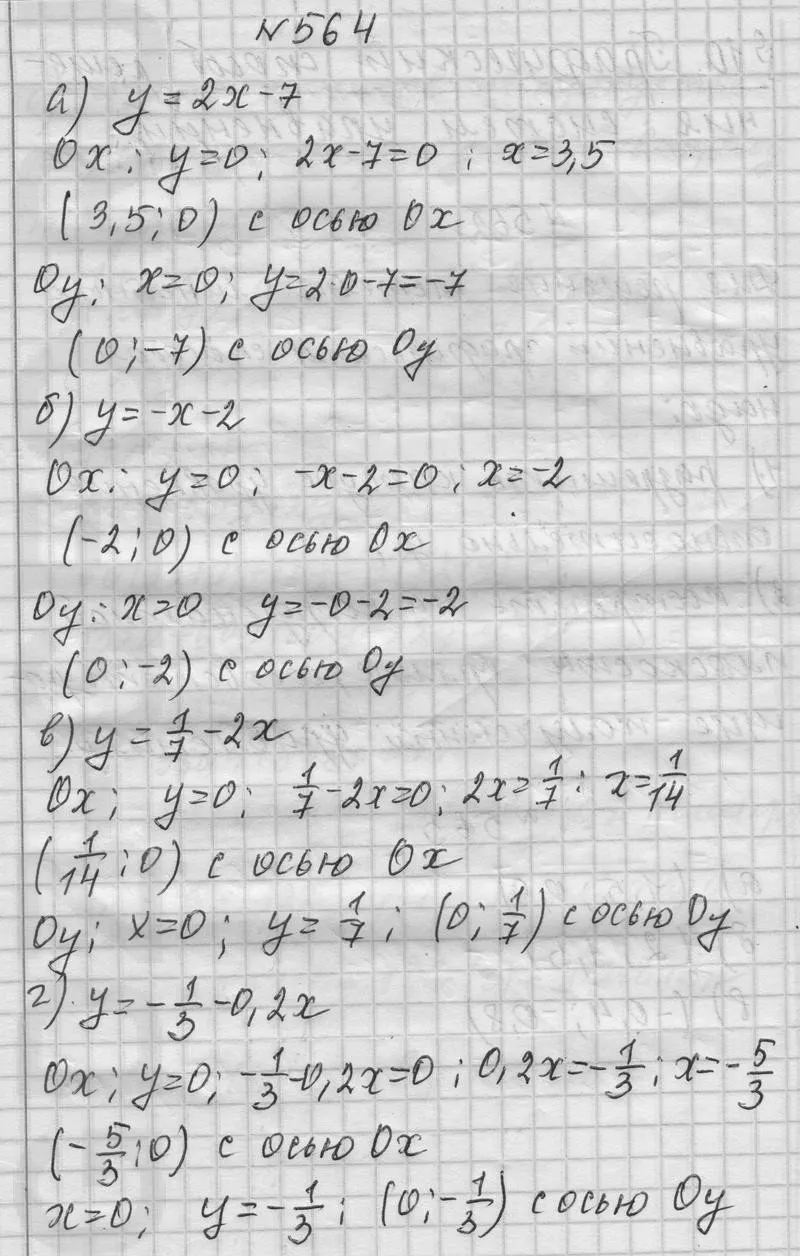 №564
а) y=2x-7
Ox; y=0; 2x-7=0; x=3,5
(3,5;0) с осью Ox
Oy; x=0; y=2·0-7=-7
(0;-7) с осью Oy
б) y=-x-2
Ox; y=0; -x-2=0; x=-2
(-2;0) с осью Ox
Oy: x=0 y=-0-2=-2
(0;-2) с осью Oy
в) y=1/7-2x
Ox; y=0; 1/7-2x=0; 2x=1/7; x=1/14
(1/14;0) с осью Ox
Oy; x=0; y=1/7; (0;1/7) с осью Oy
г) y=-1/3-0,2x
Ox; y=0; -1/3-0,2x=0; 0,2x=-1/3; x=-5/3
(-5/3;0) с осью Ox
x=0; y=-1/3; (0;-1/3) с осью Oy